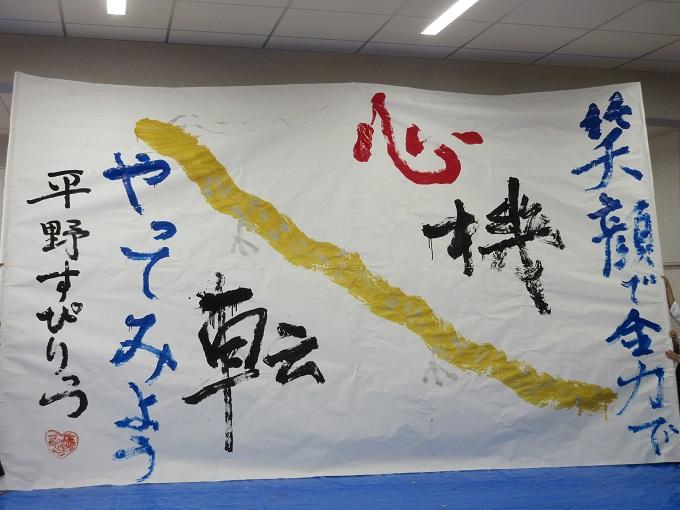 笑顔で全力で
心機一転
やってみよう
平野すぴりっつ